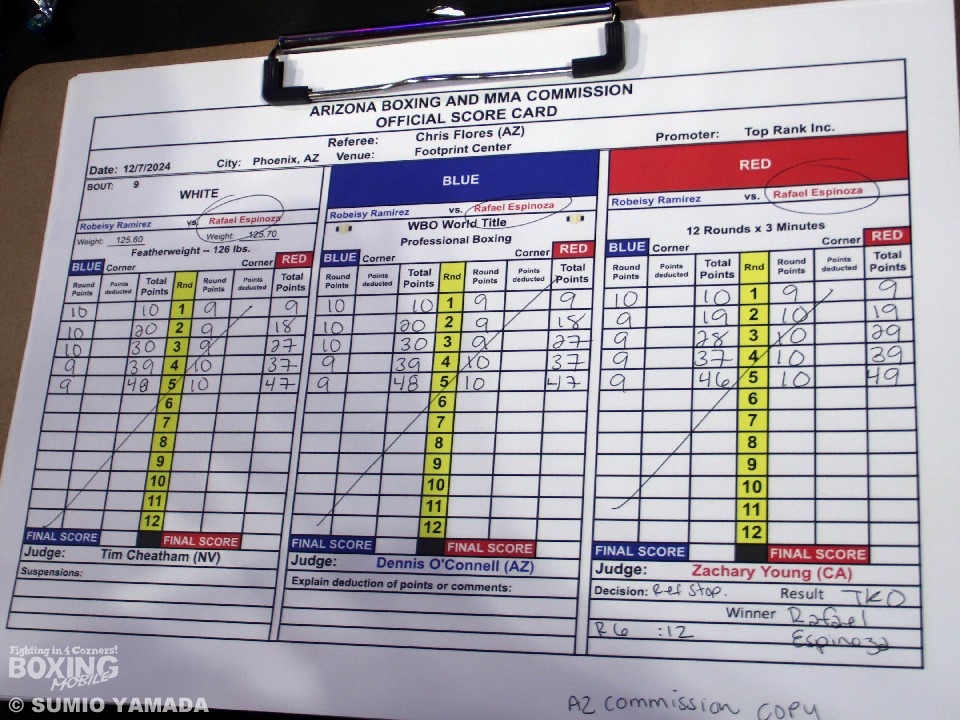 ARIZONA BOXING AND MMA COMMISSION
OFFICIAL SCORE CARD
Referee: Chris Flores (AZ)
Promoter: Top Rank Inc.
Date: 12/7/2024 City: Phoenix, AZ Venue: Footprint Center
BOUT: 9
WHITE
Robeisy Ramirez vs. Rafael Espinoza
Weight: 125.60 Weight: 125.70
Featherweight -- 126 lbs.
BLUE Corner Corner RED
Round Points Points deducted Total Points Rnd Round Points Points deducted Total Points
10 10 1 9 9
10 20 2 9 18
10 30 3 9 27
9 39 4 10 37
9 48 5 10 47
6
7
8
9
10
11
12
FINAL SCORE FINAL SCORE
Judge: Tim Cheatham (NV)
Suspensions:
BLUE
Robeisy Ramirez vs. Rafael Espinoza
WBO World Title
Professional Boxing
BLUE Corner Corner RED
Round Points Points deducted Total Points Rnd Round Points Points deducted Total Points
10 10 1 9 9
10 20 2 9 18
10 30 3 9 27
9 39 4 10 37
9 48 5 10 47
6
7
8
9
10
11
12
FINAL SCORE FINAL SCORE
Judge: Dennis O'Connell (AZ)
Explain deduction of points or comments:
RED
Robeisy Ramirez vs. Rafael Espinoza
12 Rounds x 3 Minutes
BLUE Corner Corner RED
Round Points Points deducted Total Points Rnd Round Points Points deducted Total Points
10 10 1 9 9
9 19 2 10 19
9 28 3 10 29
9 37 4 10 39
9 46 5 10 49
6
7
8
9
10
11
12
FINAL SCORE FINAL SCORE
Judge: Zachary Young (CA)
Decision: Ref Stop. Result TKO
Winner Rafael
R6 :12 Espinoza
AZ Commission COPY
Fighting in 4 Corners!
BOXING
MOBILE
© SUMIO YAMADA